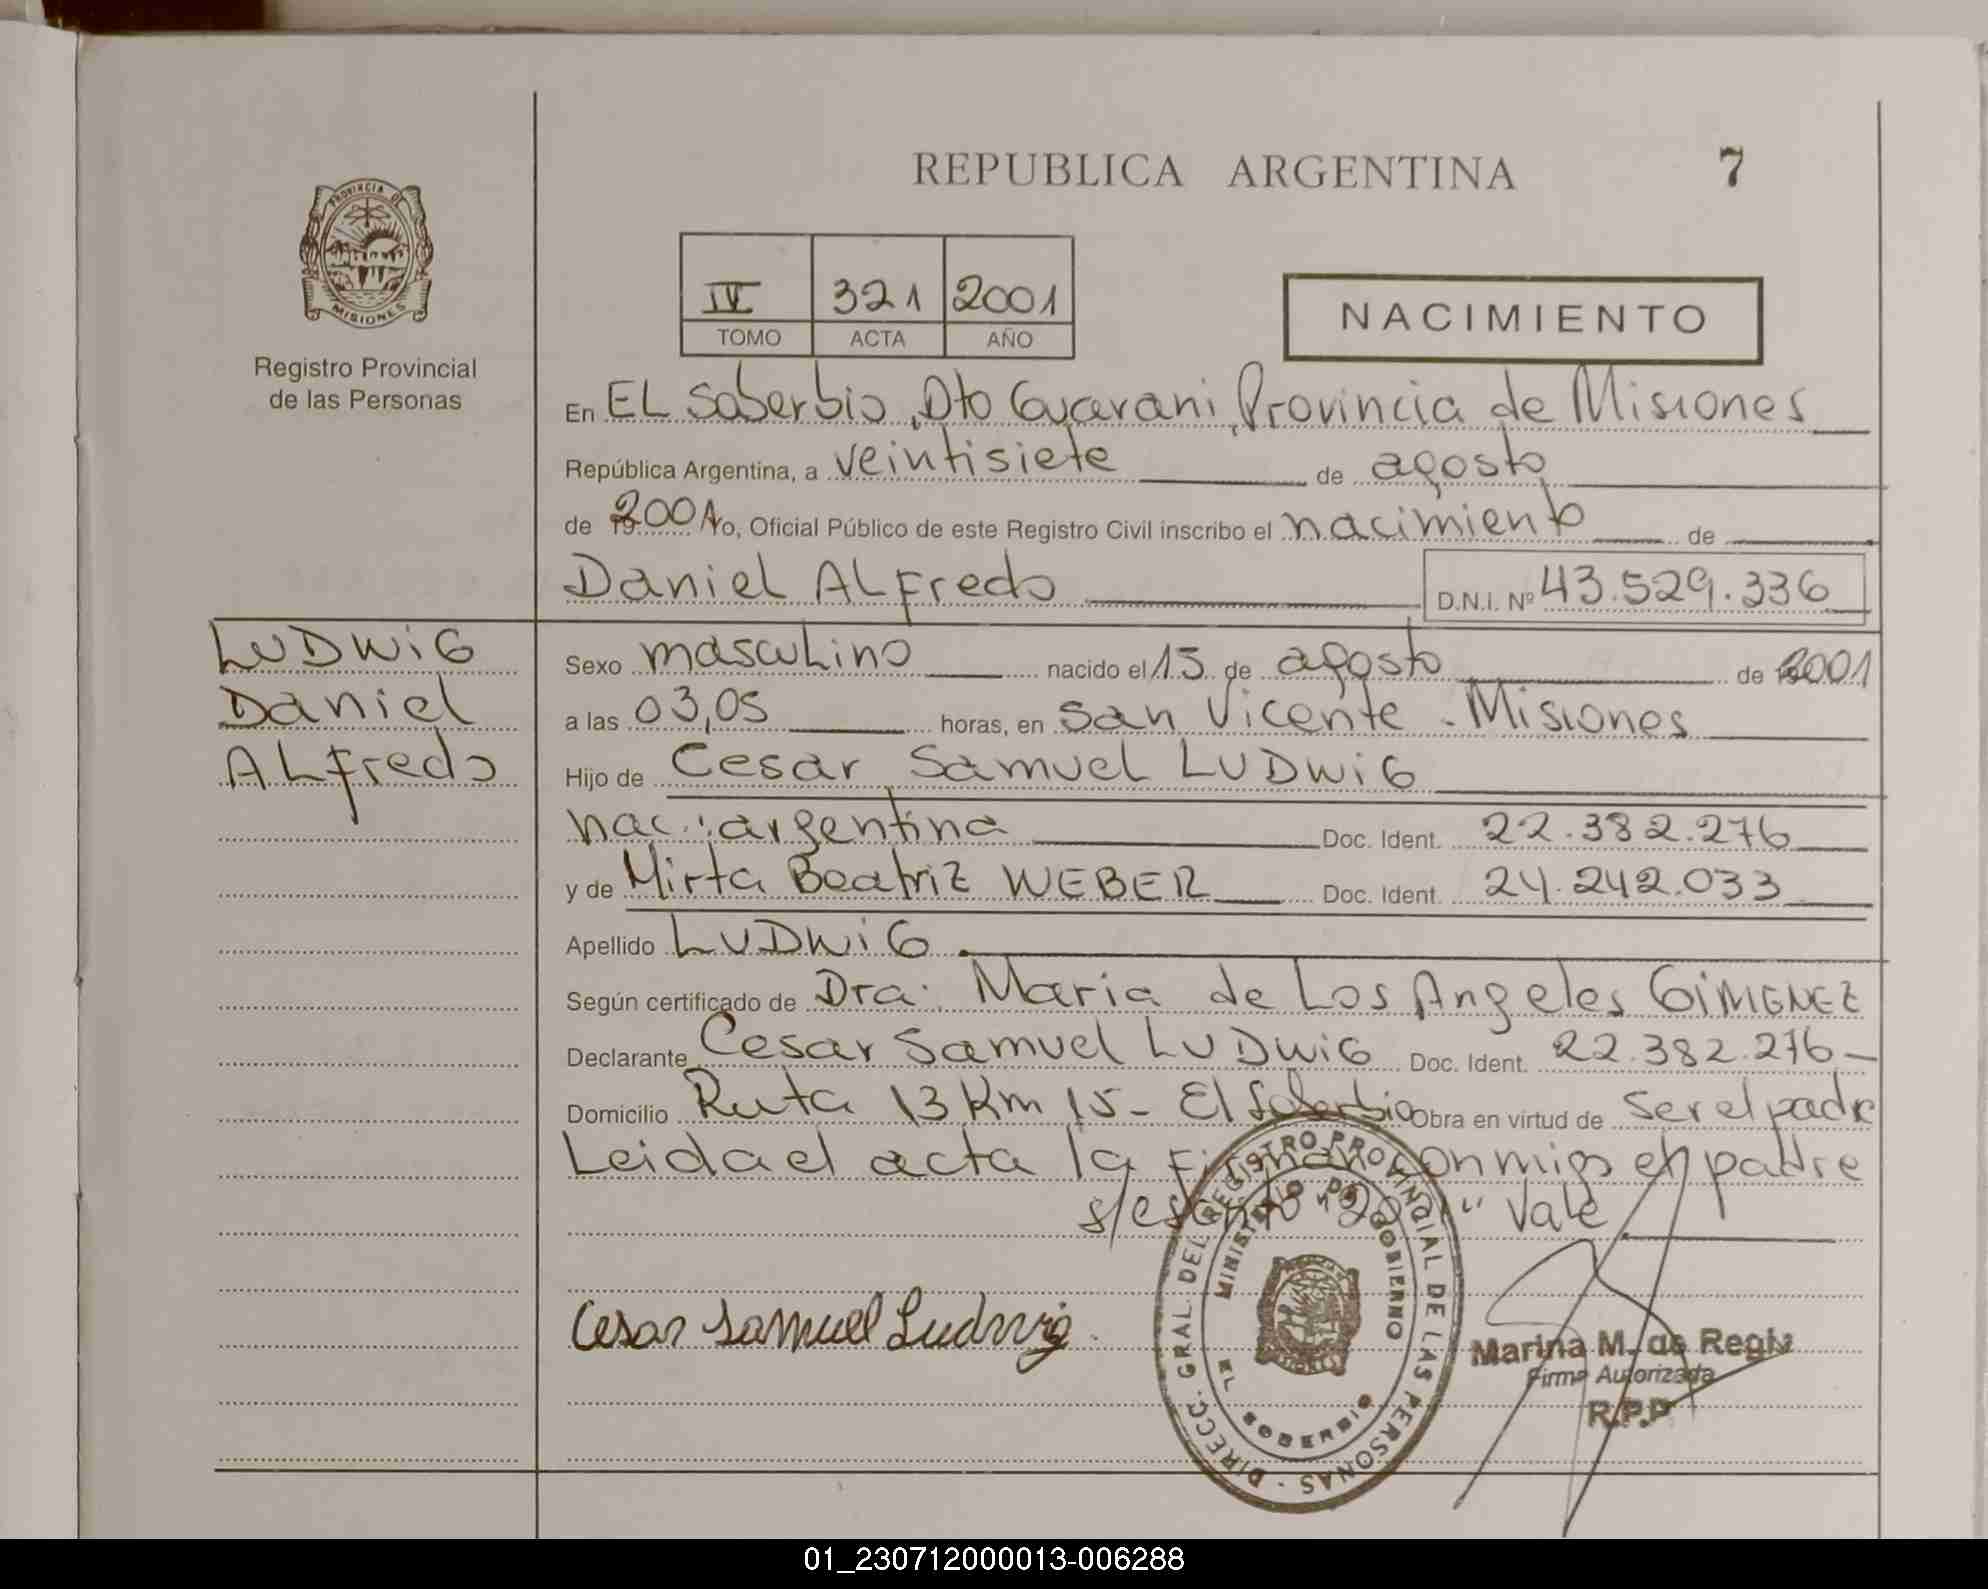 REPUBLICA ARGENTINA
7
PROVINCIA DE
MISIONES
Registro Provincial
de las Personas
IV 321 2001
TOMO ACTA AÑO
NACIMIENTO
En EL Soberbio, Dto Guarani, Provincia de Misiones
República Argentina, a veintisiete de agosto
de 2001 Yo, Oficial Público de este Registro Civil inscribo el nacimiento de
Daniel ALFredo D.N.I. Nº 43.529.336
LUDWiG
Daniel
ALfredo
Sexo mascuLino nacido el 15 de agosto de 2001
a las 03,05 horas, en San Vicente - Misiones
Hijo de Cesar Samuel LUDWiG
nac.: argentina Doc. Ident. 22.382.276
y de Mirta Beatriz WEBER Doc. Ident. 24.242.033
Apellido LUDWiG
Según certificado de Dra. Maria de Los Angeles GiMENEZ
Declarante Cesar Samuel LUDWiG Doc. Ident. 22.382.276
Domicilio Ruta 13 Km 15 - El Soberbio Obra en virtud de ser el padre
Leida el acta la firman conmigo el padre
s/escrito "2001" Vale
Cesar Samuel Ludwig
DIRECC. GRAL. DEL REGISTRO PROVINCIAL DE LAS PERSONAS
MINISTERIO DE GOBIERNO
EL SOBERBIO
Marina M. de Regis
Firma Autorizada
R.P.P
01_230712000013-006288